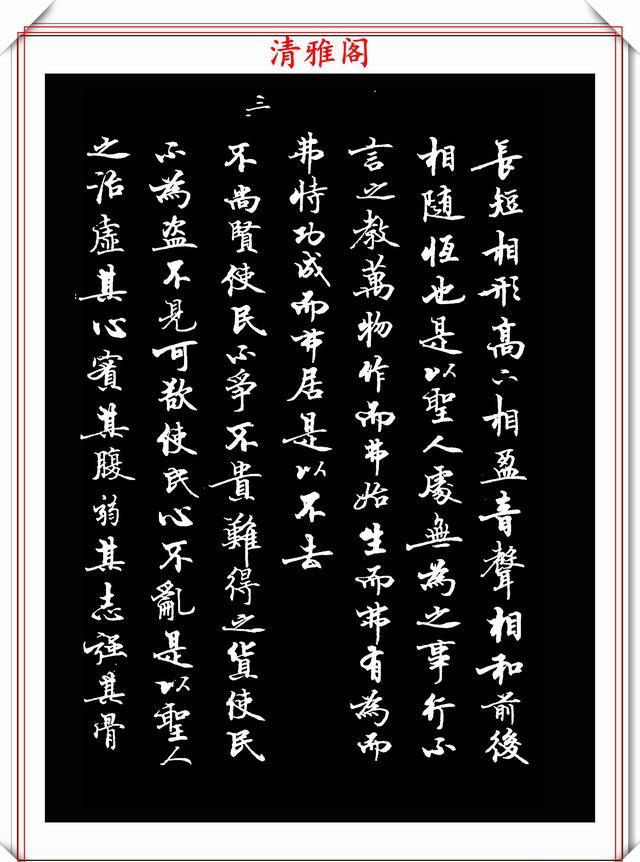 清雅阁
長短相形高下相盈音聲相和前後
相随恆也是以聖人處無為之事行不
言之教萬物作而弗始生而弗有為而
弗恃功成而弗居是以不去
三
不尚賢使民不爭不貴難得之貨使民
不為盗不見可欲使民心不亂是以聖人
之治虛其心實其腹弱其志强其骨